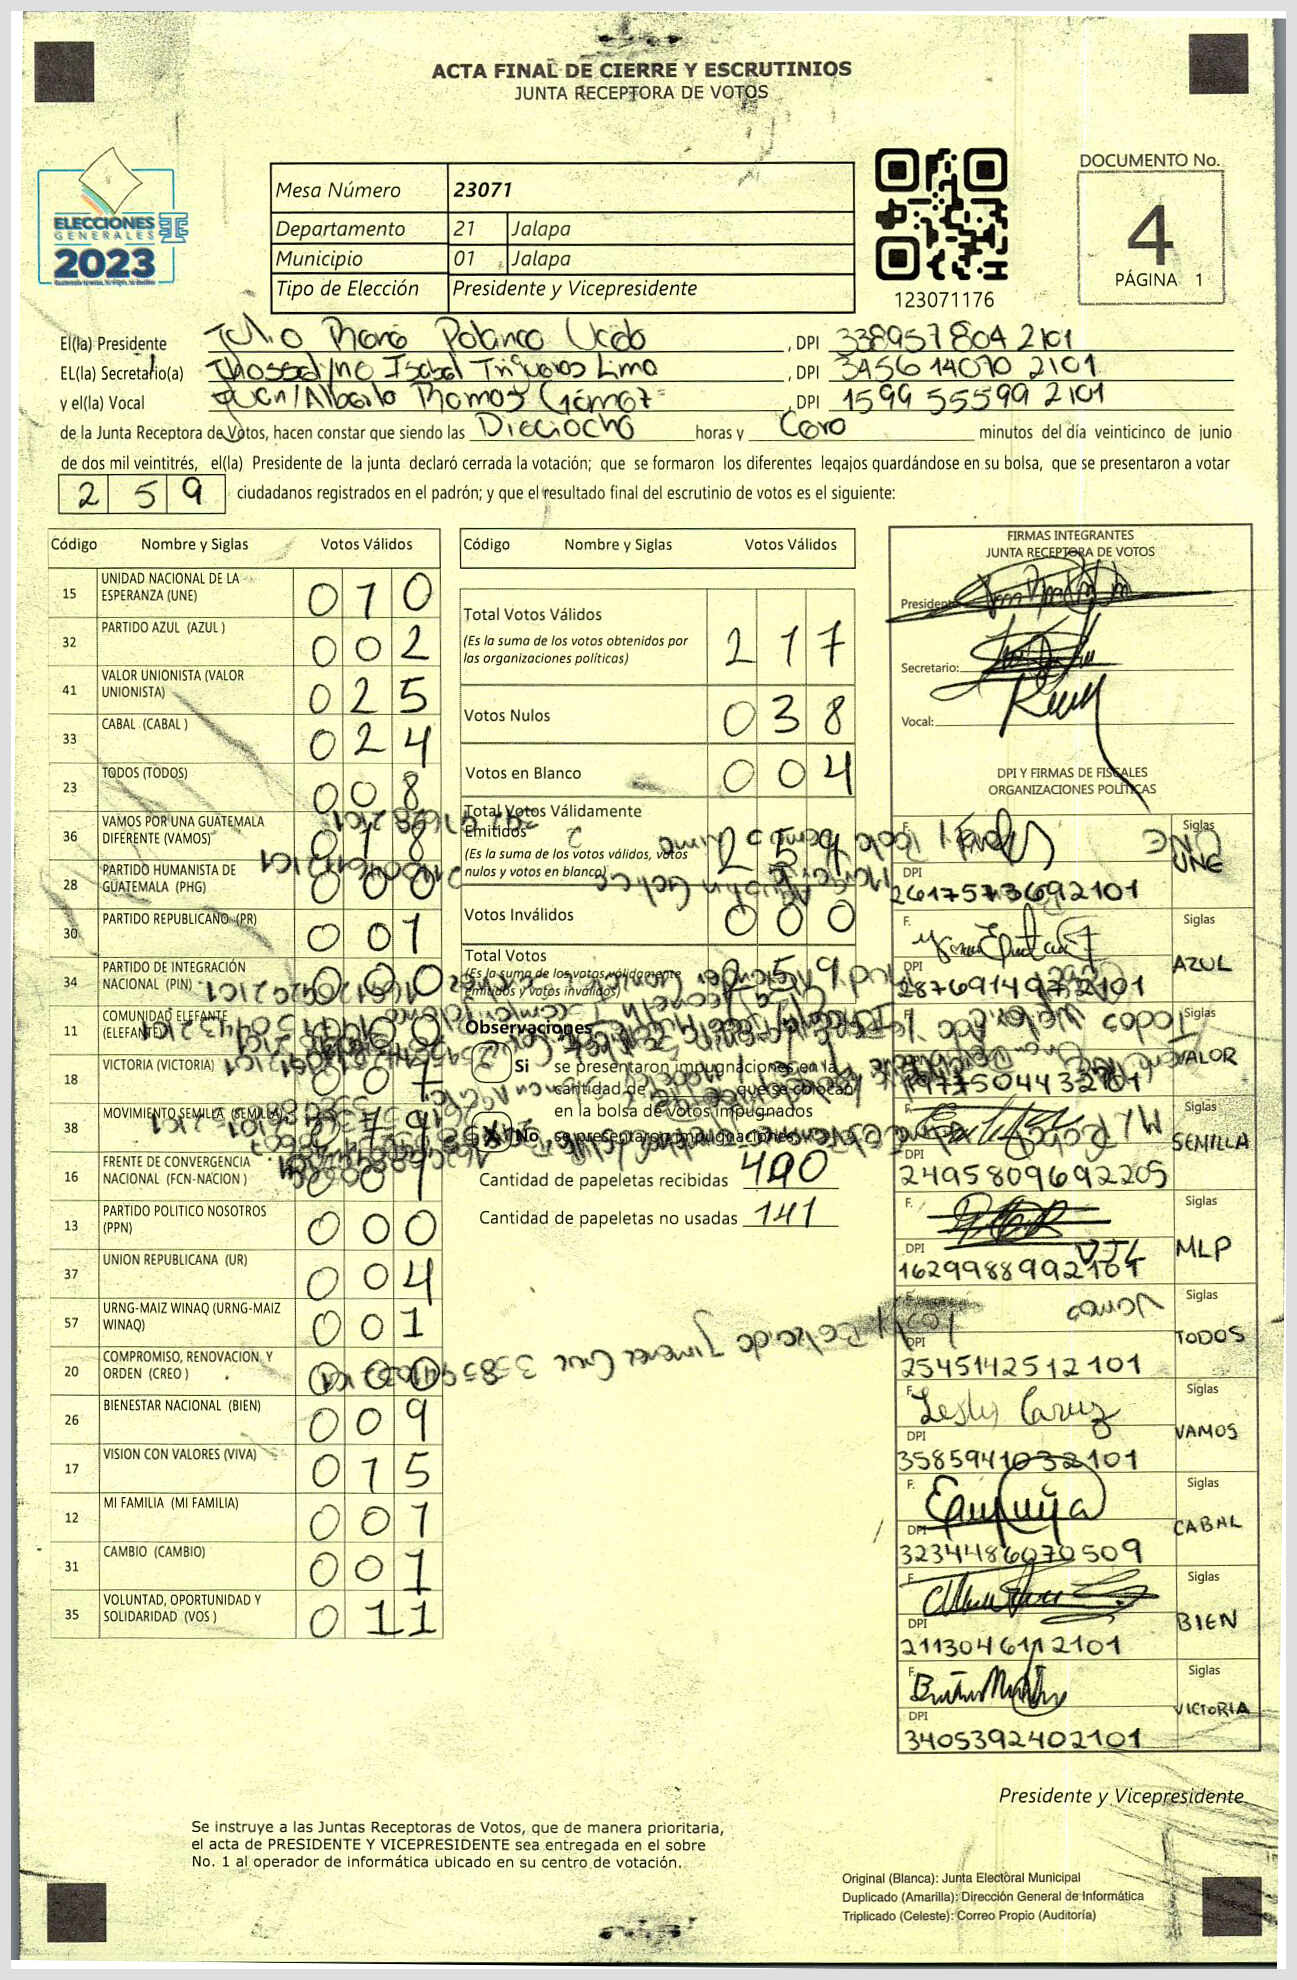 ACTA FINAL DE CIERRE Y ESCRUTINIOS
JUNTA RECEPTORA DE VOTOS
ELECCIONES
GENERALES
2023
Mesa Número 23071
Departamento 21 Jalapa
Municipio 01 Jalapa
Tipo de Elección Presidente y Vicepresidente
123071176
DOCUMENTO No.
4
PÁGINA 1
El(la) Presidente Julio , DPI 338957804 2101
EL(la) Secretario(a) Isabel Trigueros Lima , DPI 3456 14070 2101
y el(la) Vocal Juan Alberto Ramos Gómez , DPI 1599 55599 2101
de la Junta Receptora de Votos, hacen constar que siendo las Dieciocho horas y Cero minutos del día veinticinco de junio
de dos mil veintitrés, el(la) Presidente de la junta declaró cerrada la votación; que se formaron los diferentes legajos guardándose en su bolsa, que se presentaron a votar
259 ciudadanos registrados en el padrón; y que el resultado final del escrutinio de votos es el siguiente:
Código Nombre y Siglas Votos Válidos
15 UNIDAD NACIONAL DE LA ESPERANZA (UNE) 010
32 PARTIDO AZUL (AZUL ) 002
41 VALOR UNIONISTA (VALOR UNIONISTA) 025
33 CABAL (CABAL ) 024
23 TODOS (TODOS) 008
36 VAMOS POR UNA GUATEMALA DIFERENTE (VAMOS) 018
28 PARTIDO HUMANISTA DE GUATEMALA (PHG) 000
30 PARTIDO REPUBLICANO (PR) 001
34 PARTIDO DE INTEGRACIÓN NACIONAL (PIN) 000
11 COMUNIDAD ELEFANTE (ELEFANTE)
18 VICTORIA (VICTORIA)
38 MOVIMIENTO SEMILLA (SEMILLA)
16 FRENTE DE CONVERGENCIA NACIONAL (FCN-NACION ) 001
13 PARTIDO POLITICO NOSOTROS (PPN) 000
37 UNION REPUBLICANA (UR) 004
57 URNG-MAIZ WINAQ (URNG-MAIZ WINAQ) 001
20 COMPROMISO, RENOVACION Y ORDEN (CREO ) 000
26 BIENESTAR NACIONAL (BIEN) 009
17 VISION CON VALORES (VIVA) 015
12 MI FAMILIA (MI FAMILIA) 001
31 CAMBIO (CAMBIO) 001
35 VOLUNTAD, OPORTUNIDAD Y SOLIDARIDAD (VOS ) 011
Código Nombre y Siglas Votos Válidos
Total Votos Válidos 217
(Es la suma de los votos obtenidos por
las organizaciones políticas)
Votos Nulos 038
Votos en Blanco 004
Total Votos Válidamente
Emitidos 259
(Es la suma de los votos válidos, votos
nulos y votos en blanco)
Votos Inválidos 000
Total Votos 259
(Es la suma de los votos válidamente
emitidos y votos inválidos)
Observaciones
Si se presentaron impugnaciones en la
cantidad de que se colocan
en la bolsa de votos impugnados
X No se presentaron impugnaciones
Cantidad de papeletas recibidas 400
Cantidad de papeletas no usadas 141
FIRMAS INTEGRANTES
JUNTA RECEPTORA DE VOTOS
Presidente:
Secretario:
Vocal:
DPI Y FIRMAS DE FISCALES
ORGANIZACIONES POLÍTICAS
F. Siglas UNE
DPI 2617573692101
F. Siglas AZUL
DPI 2876914972101
F. Siglas VALOR
DPI 1977504432101
F. Siglas SEMILLA
DPI 2495809692205
F. Siglas MLP
DPI 1629988992101
F. Siglas TODOS
DPI 2545142512101
F. Lesly Cruz Siglas VAMOS
DPI 3585941032101
F. Siglas CABAL
DPI 3234486070509
F. Siglas BIEN
DPI 2113046112101
F. Siglas VICTORIA
DPI 3405392402101
Presidente y Vicepresidente
Se instruye a las Juntas Receptoras de Votos, que de manera prioritaria,
el acta de PRESIDENTE Y VICEPRESIDENTE sea entregada en el sobre
No. 1 al operador de informática ubicado en su centro de votación.
Original (Blanca): Junta Electoral Municipal
Duplicado (Amarilla): Dirección General de Informática
Triplicado (Celeste): Correo Propio (Auditoría)